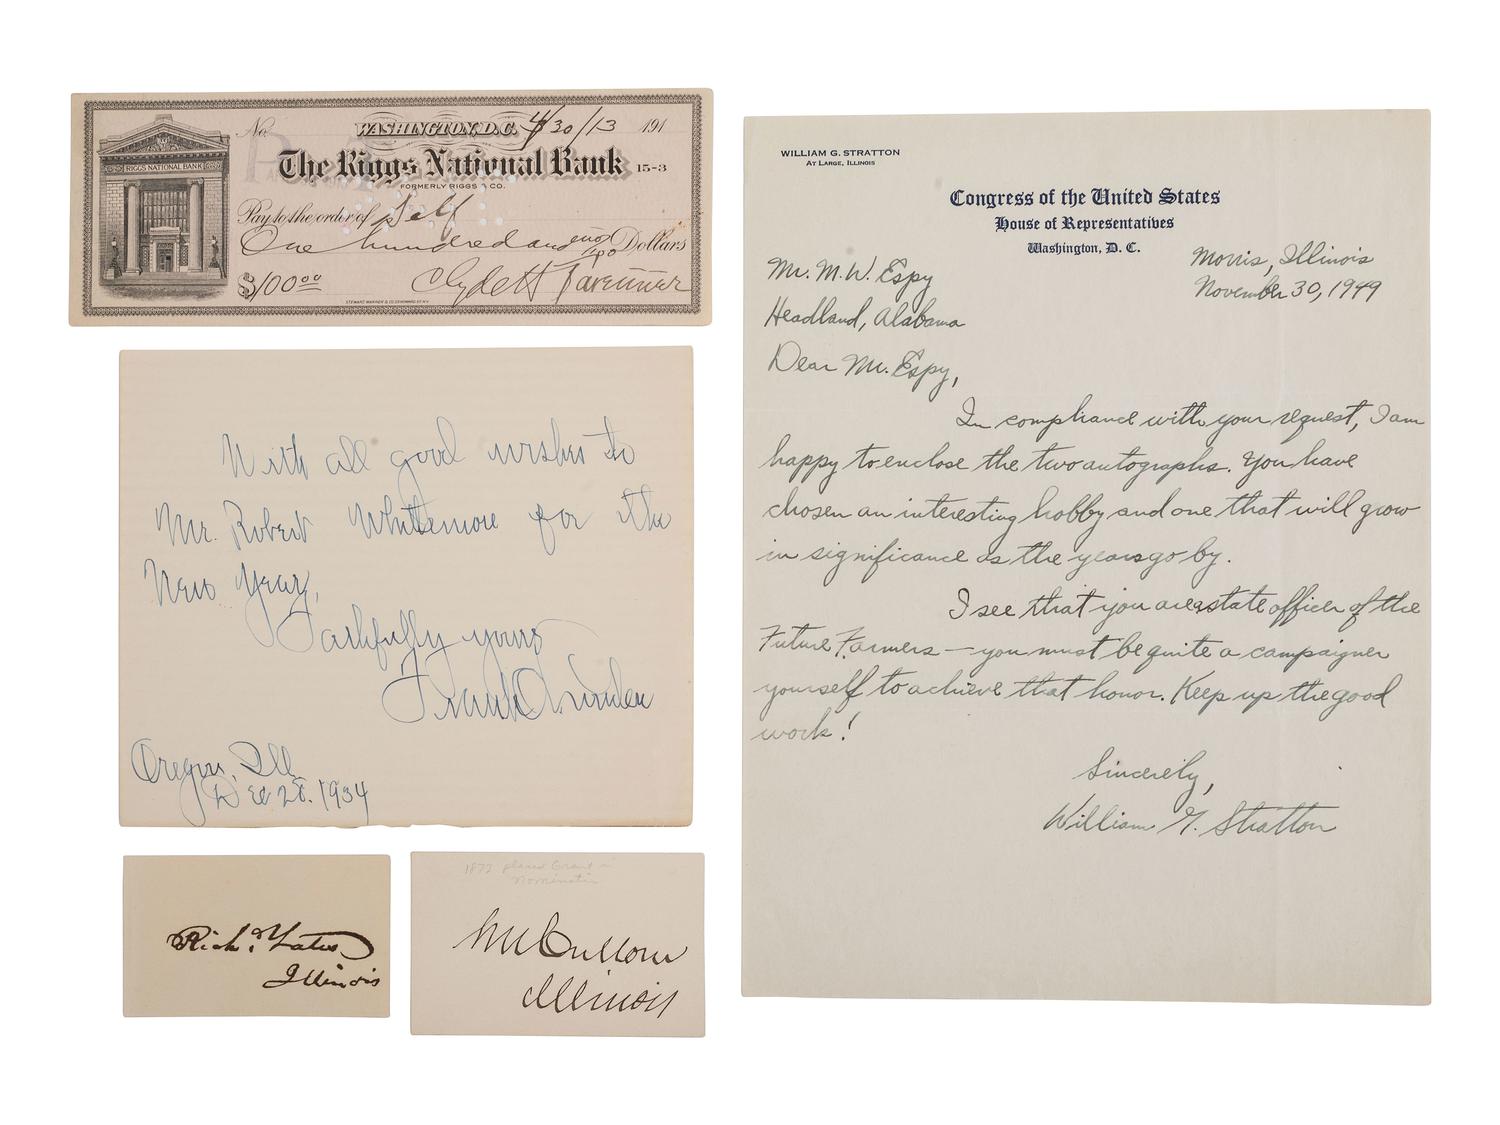 No. WASHINGTON, D.C. 4/30/13 191
The Riggs National Bank 15-3
FORMERLY RIGGS & CO.
RIGGS NATIONAL BANK
Pay to the order of Self
One hundred and no/100 Dollars
$100.00 Clyde H Tavenner
With all good wishes to
Mr. Robert Whittemore for the
New Year,
Faithfully yours
Frank O Lowden
Oregon, Ill
Dec 28. 1934
Rich: Yates
Illinois
1872 placed Grant in
Nomination
S M Cullom
Illinois
WILLIAM G. STRATTON
AT LARGE, ILLINOIS
Congress of the United States
House of Representatives
Washington, D. C.
Morris, Illinois
November 30, 1949
Mr. M. W. Espy
Headland, Alabama
Dear Mr. Espy,
In compliance with your request, I am
happy to enclose the two autographs. You have
chosen an interesting hobby and one that will grow
in significance as the years go by.
I see that you are a state officer of the
Future Farmers — you must be quite a campaigner
yourself to achieve that honor. Keep up the good
work!
Sincerely,
William G. Stratton